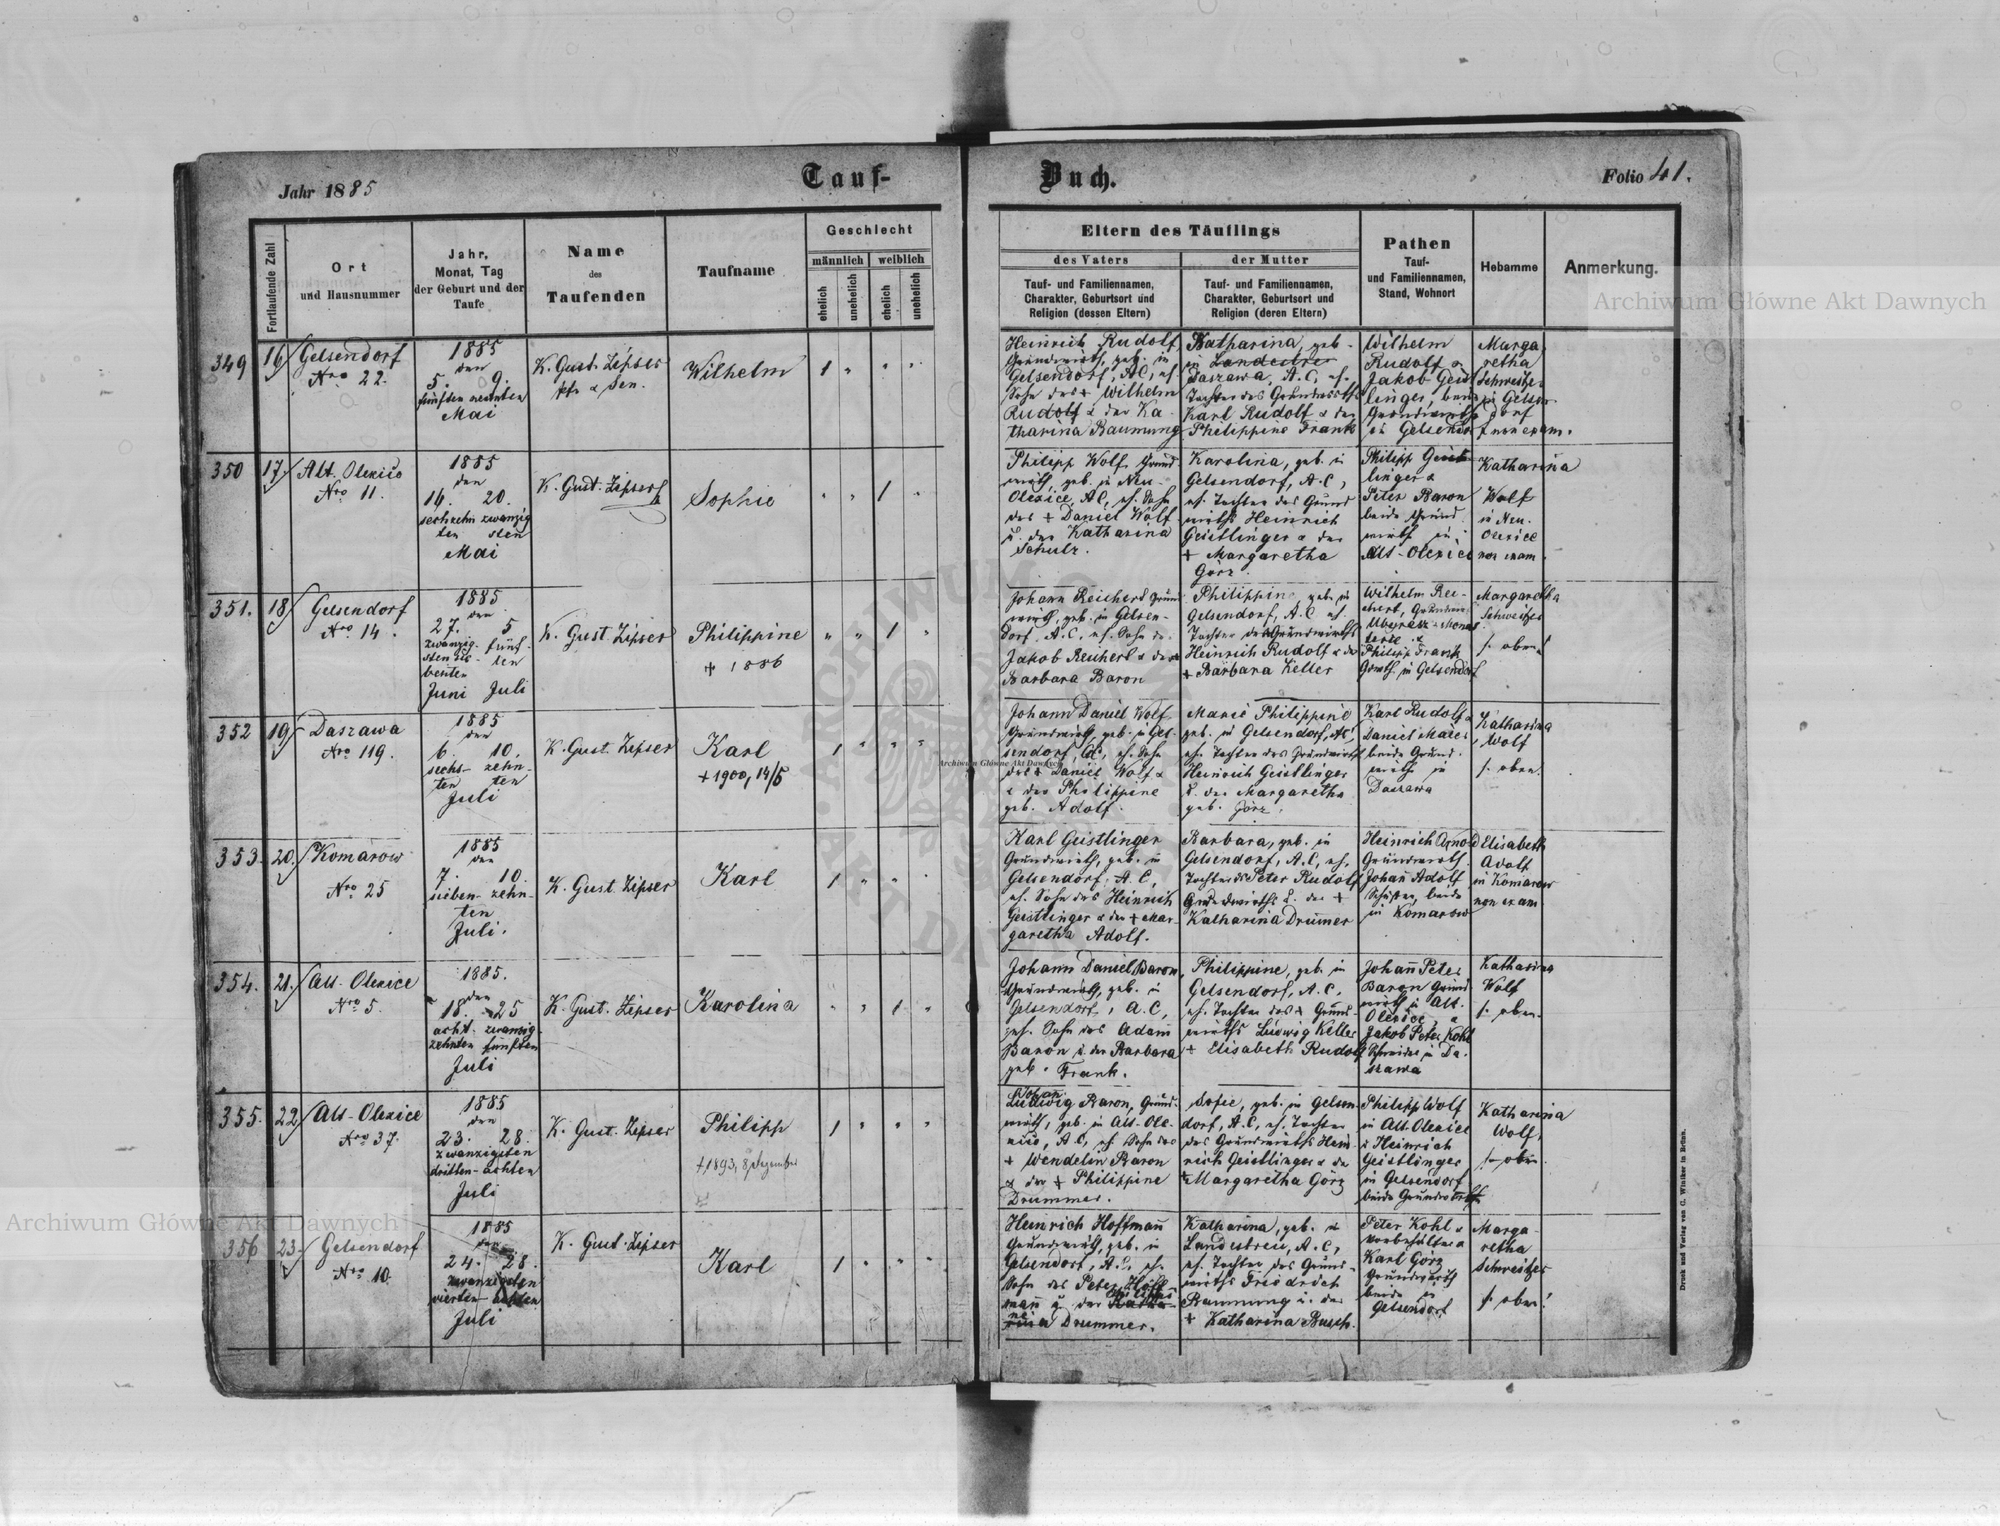 Jahr 1885
Tauf-
Buch.
Folio 41.
Fortlaufende Zahl
Ort
und Hausnummer
Jahr,
Monat, Tag
der Geburt und der
Taufe
Name
des
Taufenden
Taufname
Geschlecht
männlich
weiblich
ehelich
unehelich
ehelich
unehelich
Eltern des Täuflings
des Vaters
der Mutter
Tauf- und Familiennamen,
Charakter, Geburtsort und
Religion (dessen Eltern)
Tauf- und Familiennamen,
Charakter, Geburtsort und
Religion (deren Eltern)
Pathen
Tauf-
und Familiennamen,
Stand, Wohnort
Hebamme
Anmerkung.
349
16
Gelsendorf
Nro 22.
1885
den
5. 9.
fünften neunten
Mai
K. Gust. Zipser
Pfr. & Sen.
Wilhelm
1 " " "
Heinrich Rudolf,
Grundwirth, geb. in
Gelsendorf, A.C, eh.
Sohn des + Wilhelm
Rudolf & der Ka-
tharina Baumung
Katharina, geb.
in Landestreu
Daszawa, A.C, eh.
Tochter des Grundwirths
Karl Rudolf & der
Philippine Frank
Wilhelm
Rudolf &
Jakob Geist
linger, beide
Grundwirthe
in Gelsendorf
Marga
retha
Schweitzer
in Gelsen-
dorf
non exam.
350
17
Alt. Olexice
Nro 11.
1885
den
16. 20.
sechzehn zwanzig
ten sten
Mai
K. Gust. Zipser
Sophie
" " 1 "
Philipp Wolf Grund
wirth, geb. in Neu-
Olexice, A.C, eh. Sohn
des + Daniel Wolf
u. der Katharina
Schulz.
Karolina, geb. in
Gelsendorf, A.C,
eh. Tochter des Grund
wirths Heinrich
Geistlinger & der
+ Margaretha
Görz.
Philipp Geist
linger &
Peter Baron
beide Grund
wirth in
Alt-Olexice
Katharina
Wolf
in Neu-
Olexice
non exam.
351.
18
Gelsendorf
Nro 14.
1885
den
27. 5
zwanzig- fünf-
sten sie- ten
benten
Juni Juli
K. Gust. Zipser
Philippine
+ 1886
" " 1 "
Johann Reichert Grund
wirth, geb. in Gelsen-
dorf, A.C, eh. Sohn des
Jakob Reichert & der
Barbara Baron
Philippine, geb. in
Gelsendorf, A.C eh.
Tochter des Grundwirths
Heinrich Rudolf & der
+ Barbara Keller
Wilhelm Rei-
chert,
Philipp Frank
Grwth. in Gelsendorf
Margaretha
Schweitzer
s. oben!
352
19
Daszawa
Nro 119.
1885
den
6. 10.
sechs- zehn-
ten ten
Juli
K. Gust. Zipser
Karl
+ 1900, 14/5
1 " " "
Johann Daniel Wolf
Grundwirth, geb. in Gel-
sendorf, A.C, eh. Sohn
des + Daniel Wolf &
& der Philippine
geb. Adolf.
Marie Philippine
geb. in Gelsendorf, A.C,
eh. Tochter des Grundwirths
Heinrich Geistlinger
u. der Margaretha
geb. Görz.
Karl Rudolf &
Daniel Maier
beide Grund-
wirthe in
Daszawa
Katharina
Wolf
s. oben!
353.
20.
Komarow
Nro 25
1885
den
7. 10.
sieben- zehn-
ten
Juli.
K. Gust. Zipser
Karl
1 " " "
Karl Geistlinger
Grundwirth, geb. in
Gelsendorf, A.C,
eh. Sohn des Heinrich
Geistlinger & der + Mar-
garetha Adolf.
Barbara, geb. in
Gelsendorf, A.C, eh.
Tochter des Peter Rudolf
Grundwirths u. der +
Katharina Drumer
Heinrich Arnold
Grundwirth.
Johañ Adolf
Schuster, beide
in Komarow
Elisabeth
Adolf
in Komarow
non exam
354.
21.
Alt- Olexice
Nro 5.
1885.
den
18. 25
acht- zwanzig-
zehnten fünften
Juli
K. Gust. Zipser
Karolina
" " 1 "
Johann Daniel Baron,
Grundwirth, geb. in
Gelsendorf, A.C,
eh. Sohn des Adam
Baron u. der Barbara
geb. Frank.
Philippine, geb. in
Gelsendorf, A.C,
eh. Tochter des + Grund-
wirths Ludwig Keller
+ Elisabeth Rudolf
Johañ Peter
Baron Grund
wirth in Alt-
Olexice, &
Jakob Peter Kohl
Schneider in Da-
szawa
Katharina
Wolf
s. oben.
355.
22
Alt-Olexice
Nro 37.
1885
den
23. 28.
zwanzigsten
dritten- achten
Juli
K. Gust. Zipser
Philipp
+ 1893, 8 Dezember
1 " " "
Johann
Ludwig Baron, Grund-
wirth, geb. in Alt-Ole-
xice, A.C, eh. Sohn des
+ Wendelin Baron
& der + Philippine
Drummer.
Sofie, geb. in Gelsen
dorf, A.C, eh. Tochter
des Grundwirths Hein-
rich Geistlinger & der
+ Margaretha Görz
Philipp Wolf
in Alt-Olexice
& Heinrich
Geistlinger
in Gelsendorf
beide Grundwirthe
Katharina
Wolf,
s. oben.
356
23.
Gelsendorf
Nro 10.
1885
den
24. 28.
zwanzigsten
vierten- achten
Juli
K. Gust. Zipser
Karl
1 " " "
Heinrich Hoffmañ
Grundwirth, geb. in
Gelsendorf, A.C, eh.
Sohn des Peter Hoff
mañ u. der Katha-
Philippi
rina Drummer.
Katharina, geb. in
Landestreu, A.C,
eh. Tochter des Grund-
wirths Friedrich
Baumung u. der
+ Katharina Busch.
Peter Kohl &
Karl Görz
Grundwirth
beide in
Gelsendorf
Marga-
retha
Schweitzer
s. oben!
Druck und Verlag von C. Winiker in Brünn.
Archiwum Główne Akt Dawnych
Archiwum Główne Akt Dawnych
Archiwum Główne Akt Dawnych